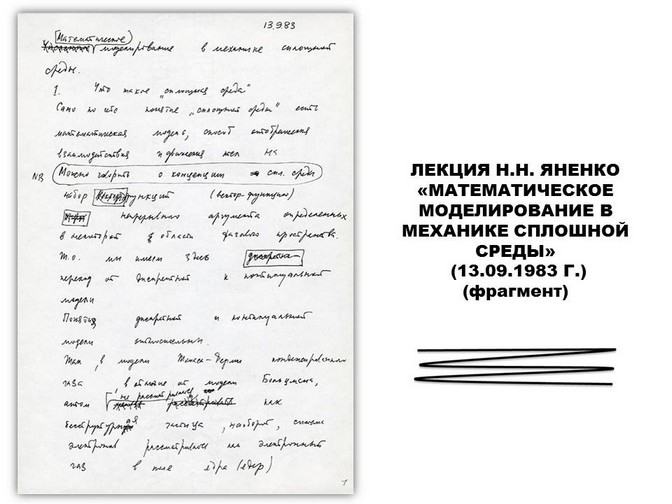 13.9.83
Математическое
моделирование в механике сплошной
среды.
1. Что такое "сплошная среда"
Само по себе понятие "сплошной среды" есть
математическая модель, способ отображения
взаимодействия и движения тел на
NB Можно говорить о концепции спл. среды
набор функций (вектор-функции)
непрерывного аргумента определенных
в некоторой области фазового пространства.
Т.о. мы имеем здесь
переход от дискретной к континуальной
модели
Понятия дискретной и континуальной
модели относительны.
Так, в модели Томаса-Ферми
газа, в отличие от модели Больцмана,
атом не рассматривается как
бесструктурная частица, наоборот, система
электронов рассматривается как электронный
газ в поле ядра (ядер)
1
ЛЕКЦИЯ Н.Н. ЯНЕНКО
«МАТЕМАТИЧЕСКОЕ
МОДЕЛИРОВАНИЕ В
МЕХАНИКЕ СПЛОШНОЙ
СРЕДЫ»
(13.09.1983 Г.)
(фрагмент)